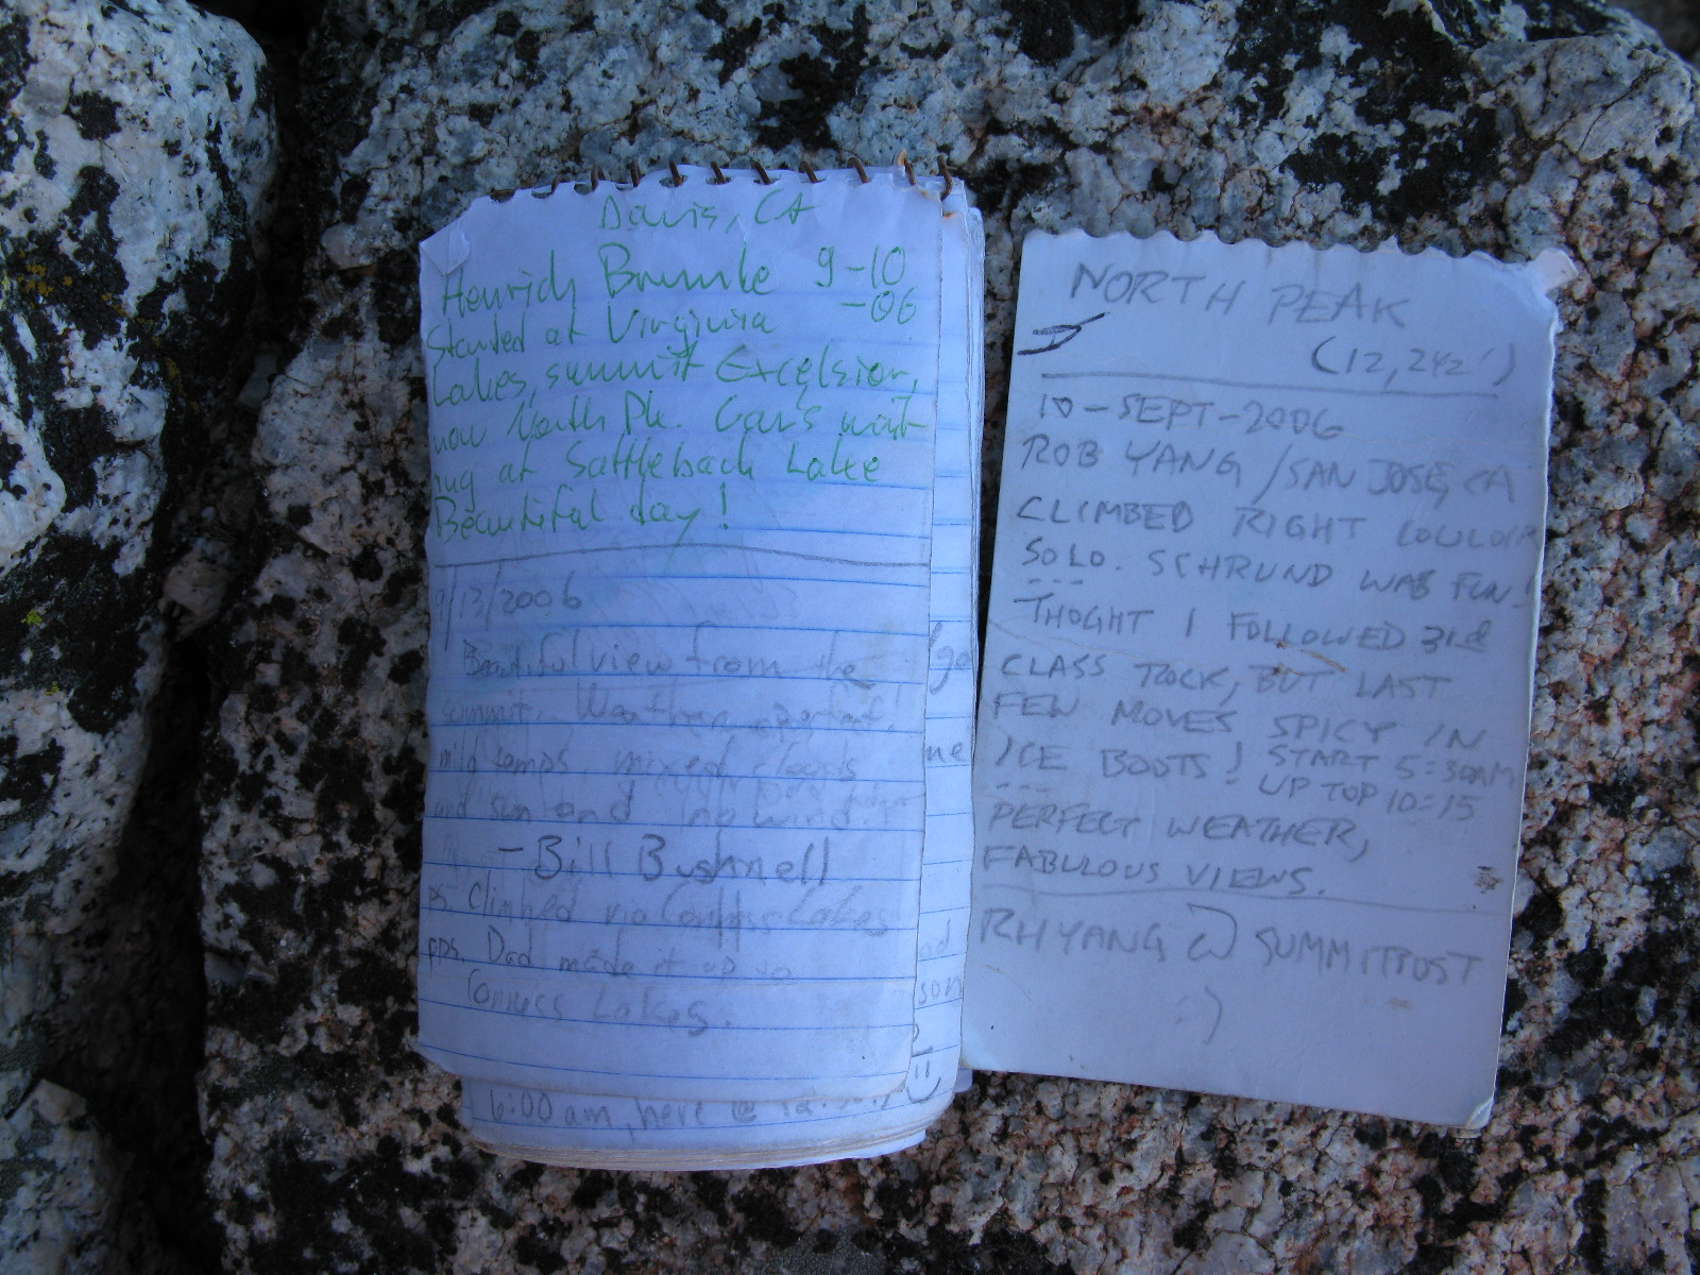 Davis, CA
Henrich 9-10
-06
Started at Virginia
Lakes, summit Excelsior,
now North Pk. Cars wait
ing at Sattleback Lake
Beautiful day!
9/13/2006
Beautiful view from the
summit. Weather
mild temps mixed clouds
and sun and no wind.
- Bill Bushnell
ps. Climbed via Conness Lakes
pps. Dad made it up to
Conness Lakes.
6:00 am, here @
NORTH PEAK
(12,242')
10-SEPT-2006
ROB YANG / SAN JOSE, CA
CLIMBED RIGHT COULOIR
SOLO. SCHRUND WAS FUN!
THOGHT I FOLLOWED 3rd
CLASS ROCK, BUT LAST
FEW MOVES SPICY IN
ICE BOOTS! START 5:30AM
UP TOP 10:15
PERFECT WEATHER,
FABULOUS VIEWS.
RHYANG @ SUMMITPOST
:)